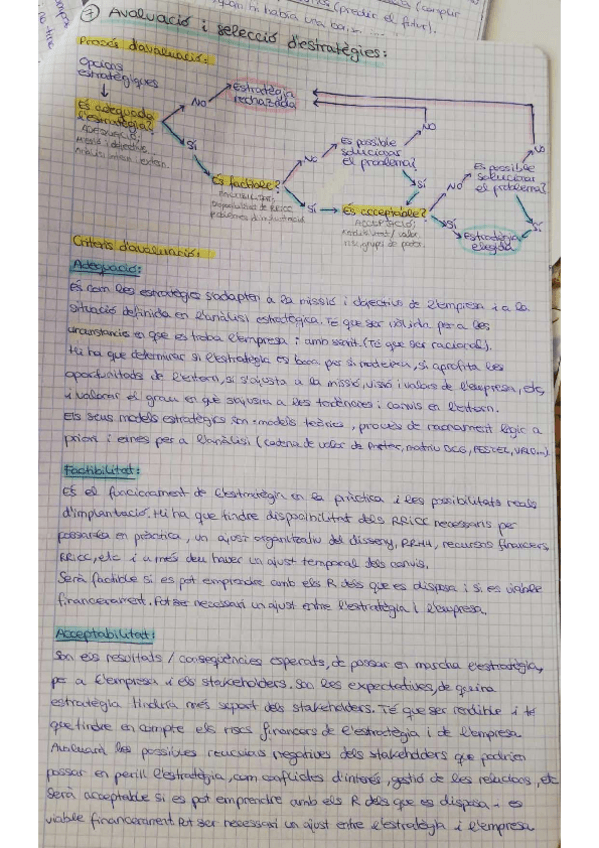 (predir el futur).
7 Avaluació i selecció d'estratègies:
Procés d'avaluació:
Opcions
estratégiques
És adequada
l'estratègia?
ADEQUACIÓ:
missió i objectius.
NO
Estratègia
rechazada
Sí
És factible?
FACTIBILITAT:
disponibilitat de RRICC
NO
És possible
solucionar
el problema?
NO
Sí
Sí
És acceptable?
ACCEPTACIÓ:
rendiment / valor
risc, grups de poder.
NO
És possible
solucionar
el problema?
NO
Sí
Sí
Estratègia
elegida
Criteris d'avaluació:
Adequació:
És com les estratègies s'adapten a la missió i objectius de l'empresa i a la
situació definida en l'anàlisi estratègica. Té que ser vàlida per a les
circunstancies en que es troba l'empresa i amb sentit. (Té que ser racional).
Hi ha que determinar si l'estratègia es bona per si mateixa, si aprofita les
oportunitats de l'extern, si s'ajusta a la missió, visió i valors de l'empresa, etc,
i valorar el grau en què s'ajusta a les tendències i canvis en l'entorn.
Els seus models estratègics son: models teòrics, procés de raonament lògic a
priori i eines per a l'anàlisi (cadena de valor de Porter, matriu BCG, PESTEL, VRIO...)
Factibilitat:
És el funcionament de l'estratègia en la pràctica i les possibilitats reals
d'implantació. Hi ha que tindre disponibilitat dels RRICC necessaris per
possarla en pràctica, un ajust organitzatiu del disseny, RRHH, recursos financers,
RRICC, etc i a més deu haver un ajust temporal dels canvis.
Serà factible si es pot emprendre amb els R dels que es disposa i si es viable
financerament. Pot ser necessari un ajust entre l'estratègia i l'empresa.
Acceptabilitat:
Son els resultats / conseqüències esperats, de possar en marcha l'estratègia,
per a l'empresa i els stakeholders. Son les expectatives, de quina
estratègia tindria més suport dels stakeholders. Té que ser rendible i té
que tindre en compte els riscs financers de l'estratègia i de l'empresa
les possibles reaccions negatives dels stakeholders que podrien
possar en perill l'estratègia, com conflictes d'interés, gestió de les relacions, etc
Serà acceptable si es pot emprendre amb els R dels que es disposa i es
viable financerament. Pot ser necessari un ajust entre l'estratègia i l'empresa